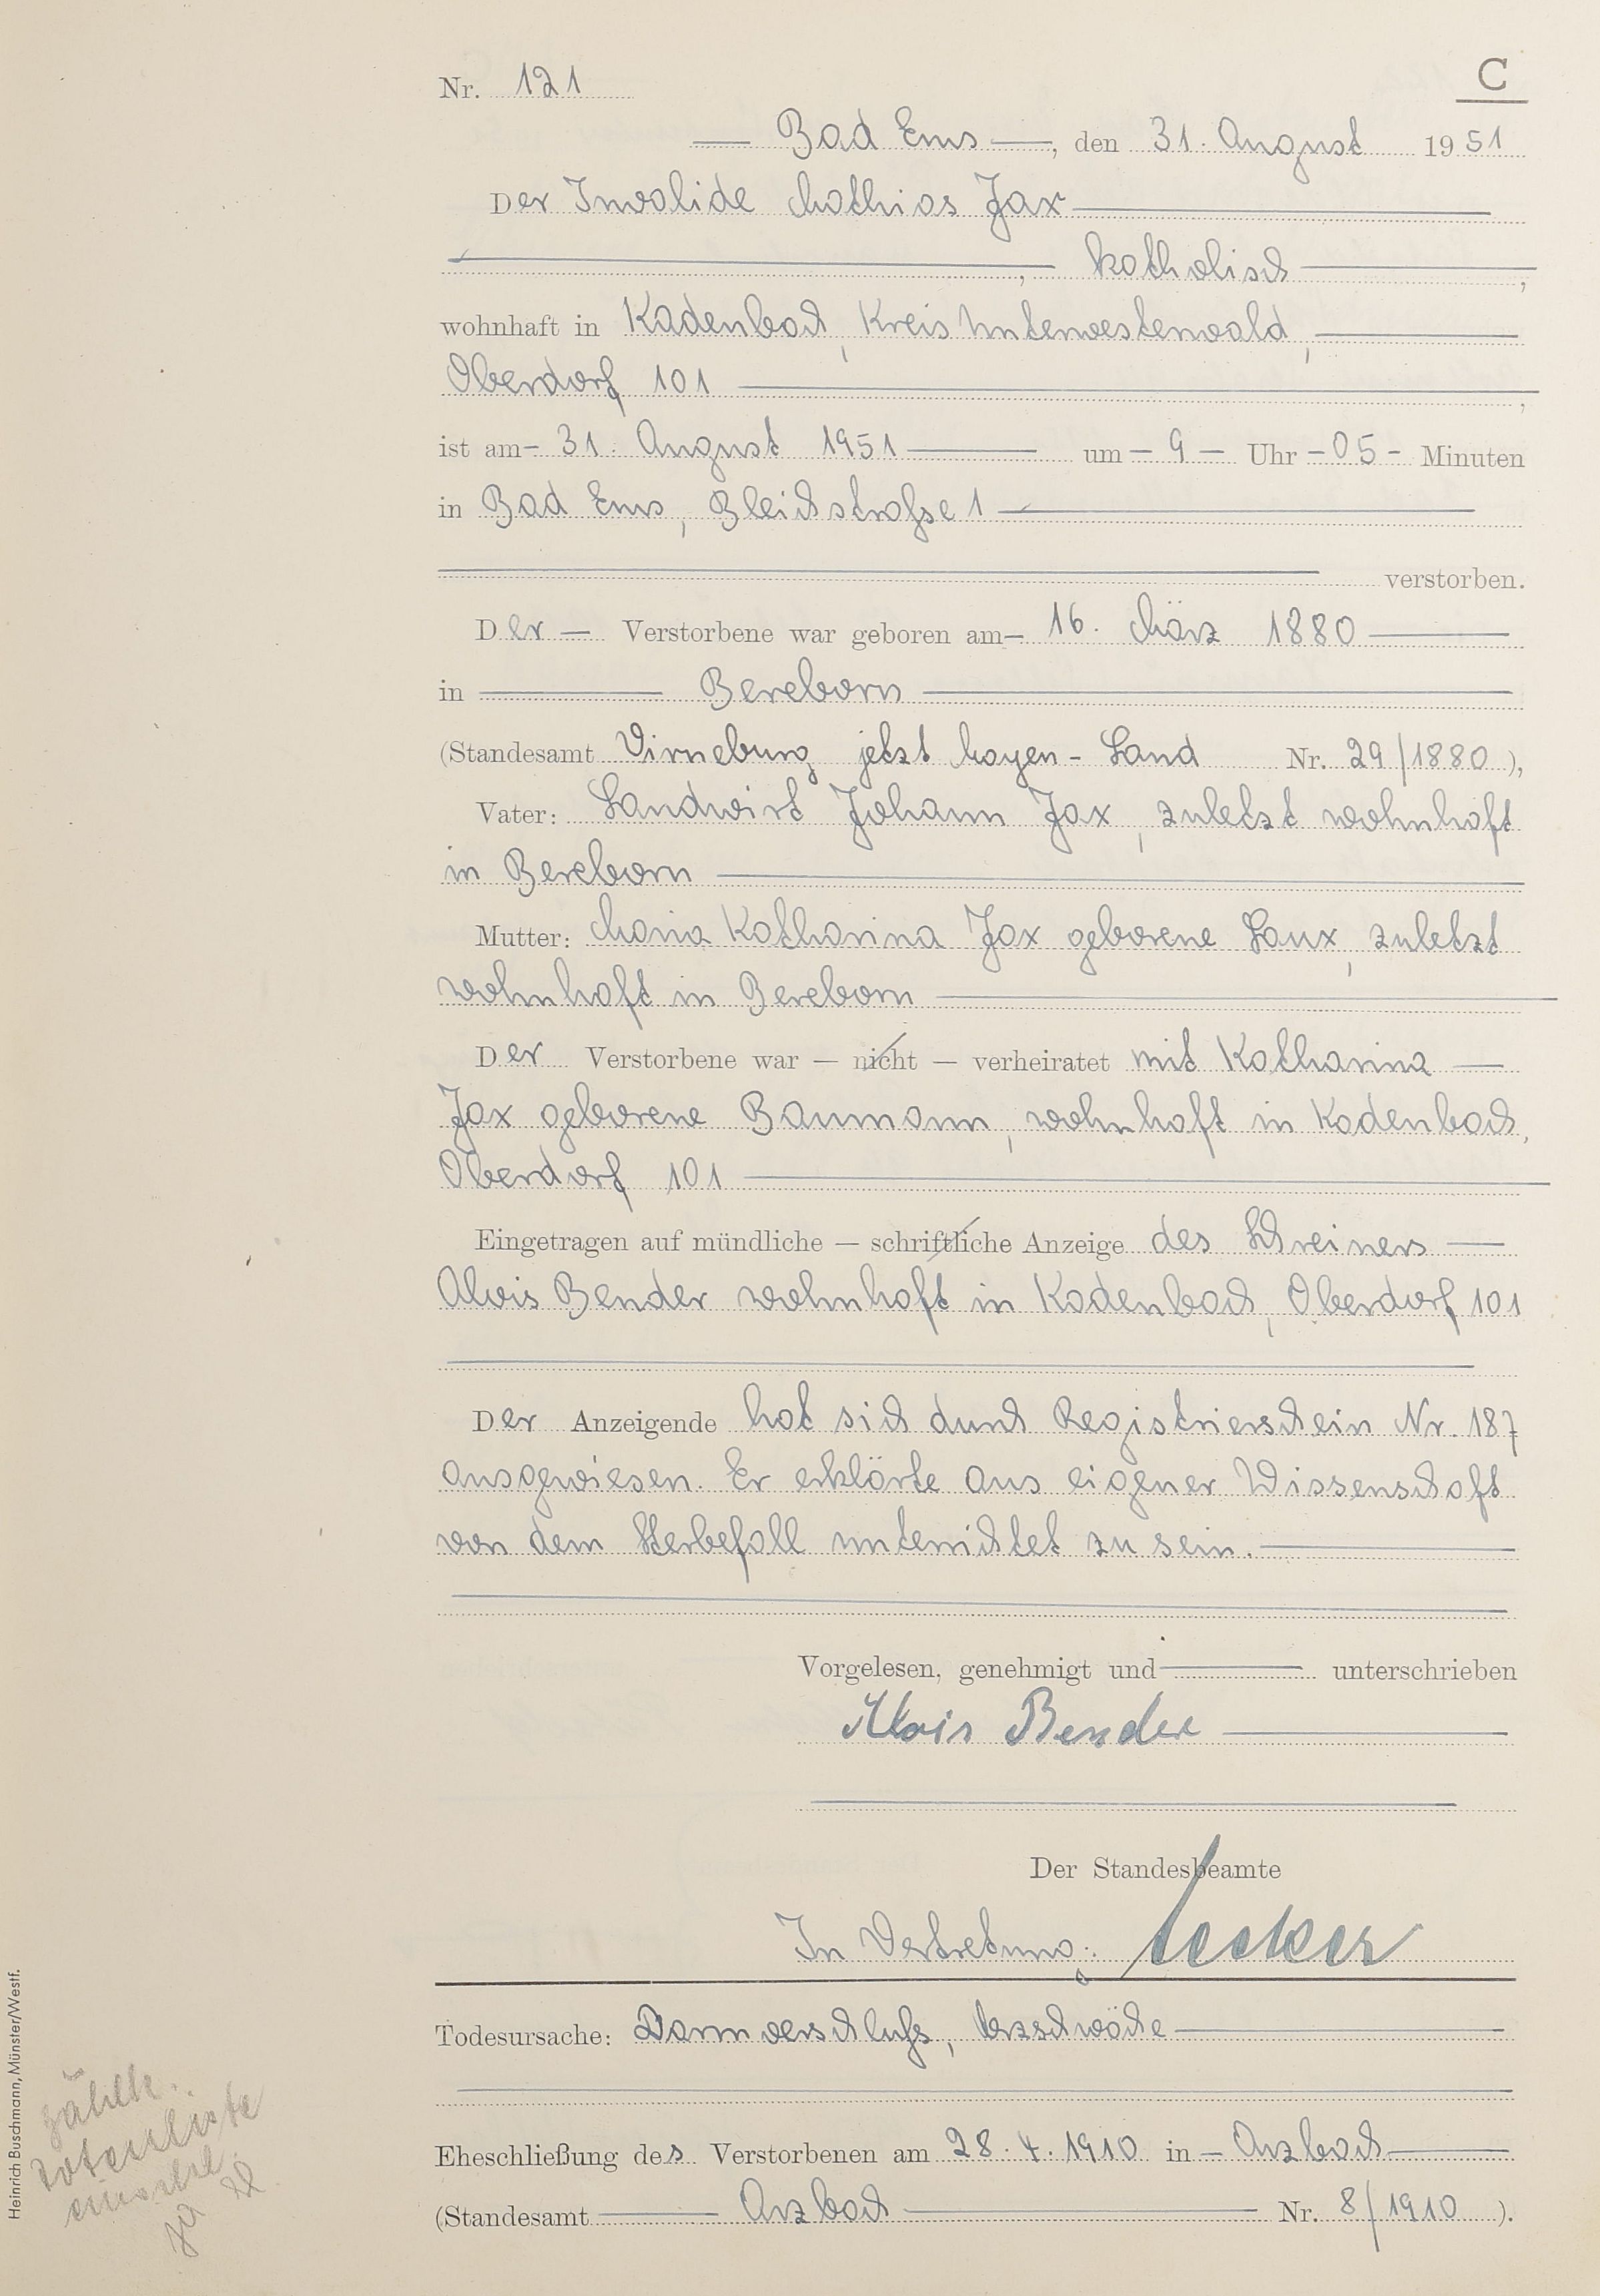 Nr. 121
C
— Bad Ems —, den 31. August 1951
Der Invalide Mathias Jax —
—, katholisch —,
wohnhaft in Kadenbach, Kreis Unterwesterwald, —
Oberdorf 101 —,
ist am - 31. August 1951 — um - 9 - Uhr - 05 - Minuten
in Bad Ems, Bleichstraße 1 —
— verstorben.
Der — Verstorbene war geboren am - 16. März 1880 —
in — Bereborn —
(Standesamt Virneburg jetzt Mayen-Land Nr. 29/1880),
Vater: Landwirt Johann Jax, zuletzt wohnhaft
in Bereborn —
Mutter: Maria Katharina Jax geborene Laux, zuletzt
wohnhaft in Bereborn —
Der Verstorbene war — nicht — verheiratet mit Katharina —
Jax geborene Baumann, wohnhaft in Kadenbach,
Oberdorf 101 —
Eingetragen auf mündliche — schriftliche Anzeige des Schreiners —
Alois Bender wohnhaft in Kadenbach, Oberdorf 101
Der Anzeigende hat sich durch Registrierschein Nr. 187
ausgewiesen. Er erklärte aus eigener Wissenschaft
von dem Sterbefall unterrichtet zu sein. —
Vorgelesen, genehmigt und — unterschrieben
Alois Bender —
Der Standesbeamte
In Vertretung:
Todesursache: Darmverschluß, Herzschwäche —
Eheschließung des Verstorbenen am 28.4.1910 in - Arzbach —
(Standesamt — Arzbach — Nr. 8/1910).
Heinrich Buschmann, Münster/Westf.
Totenliste